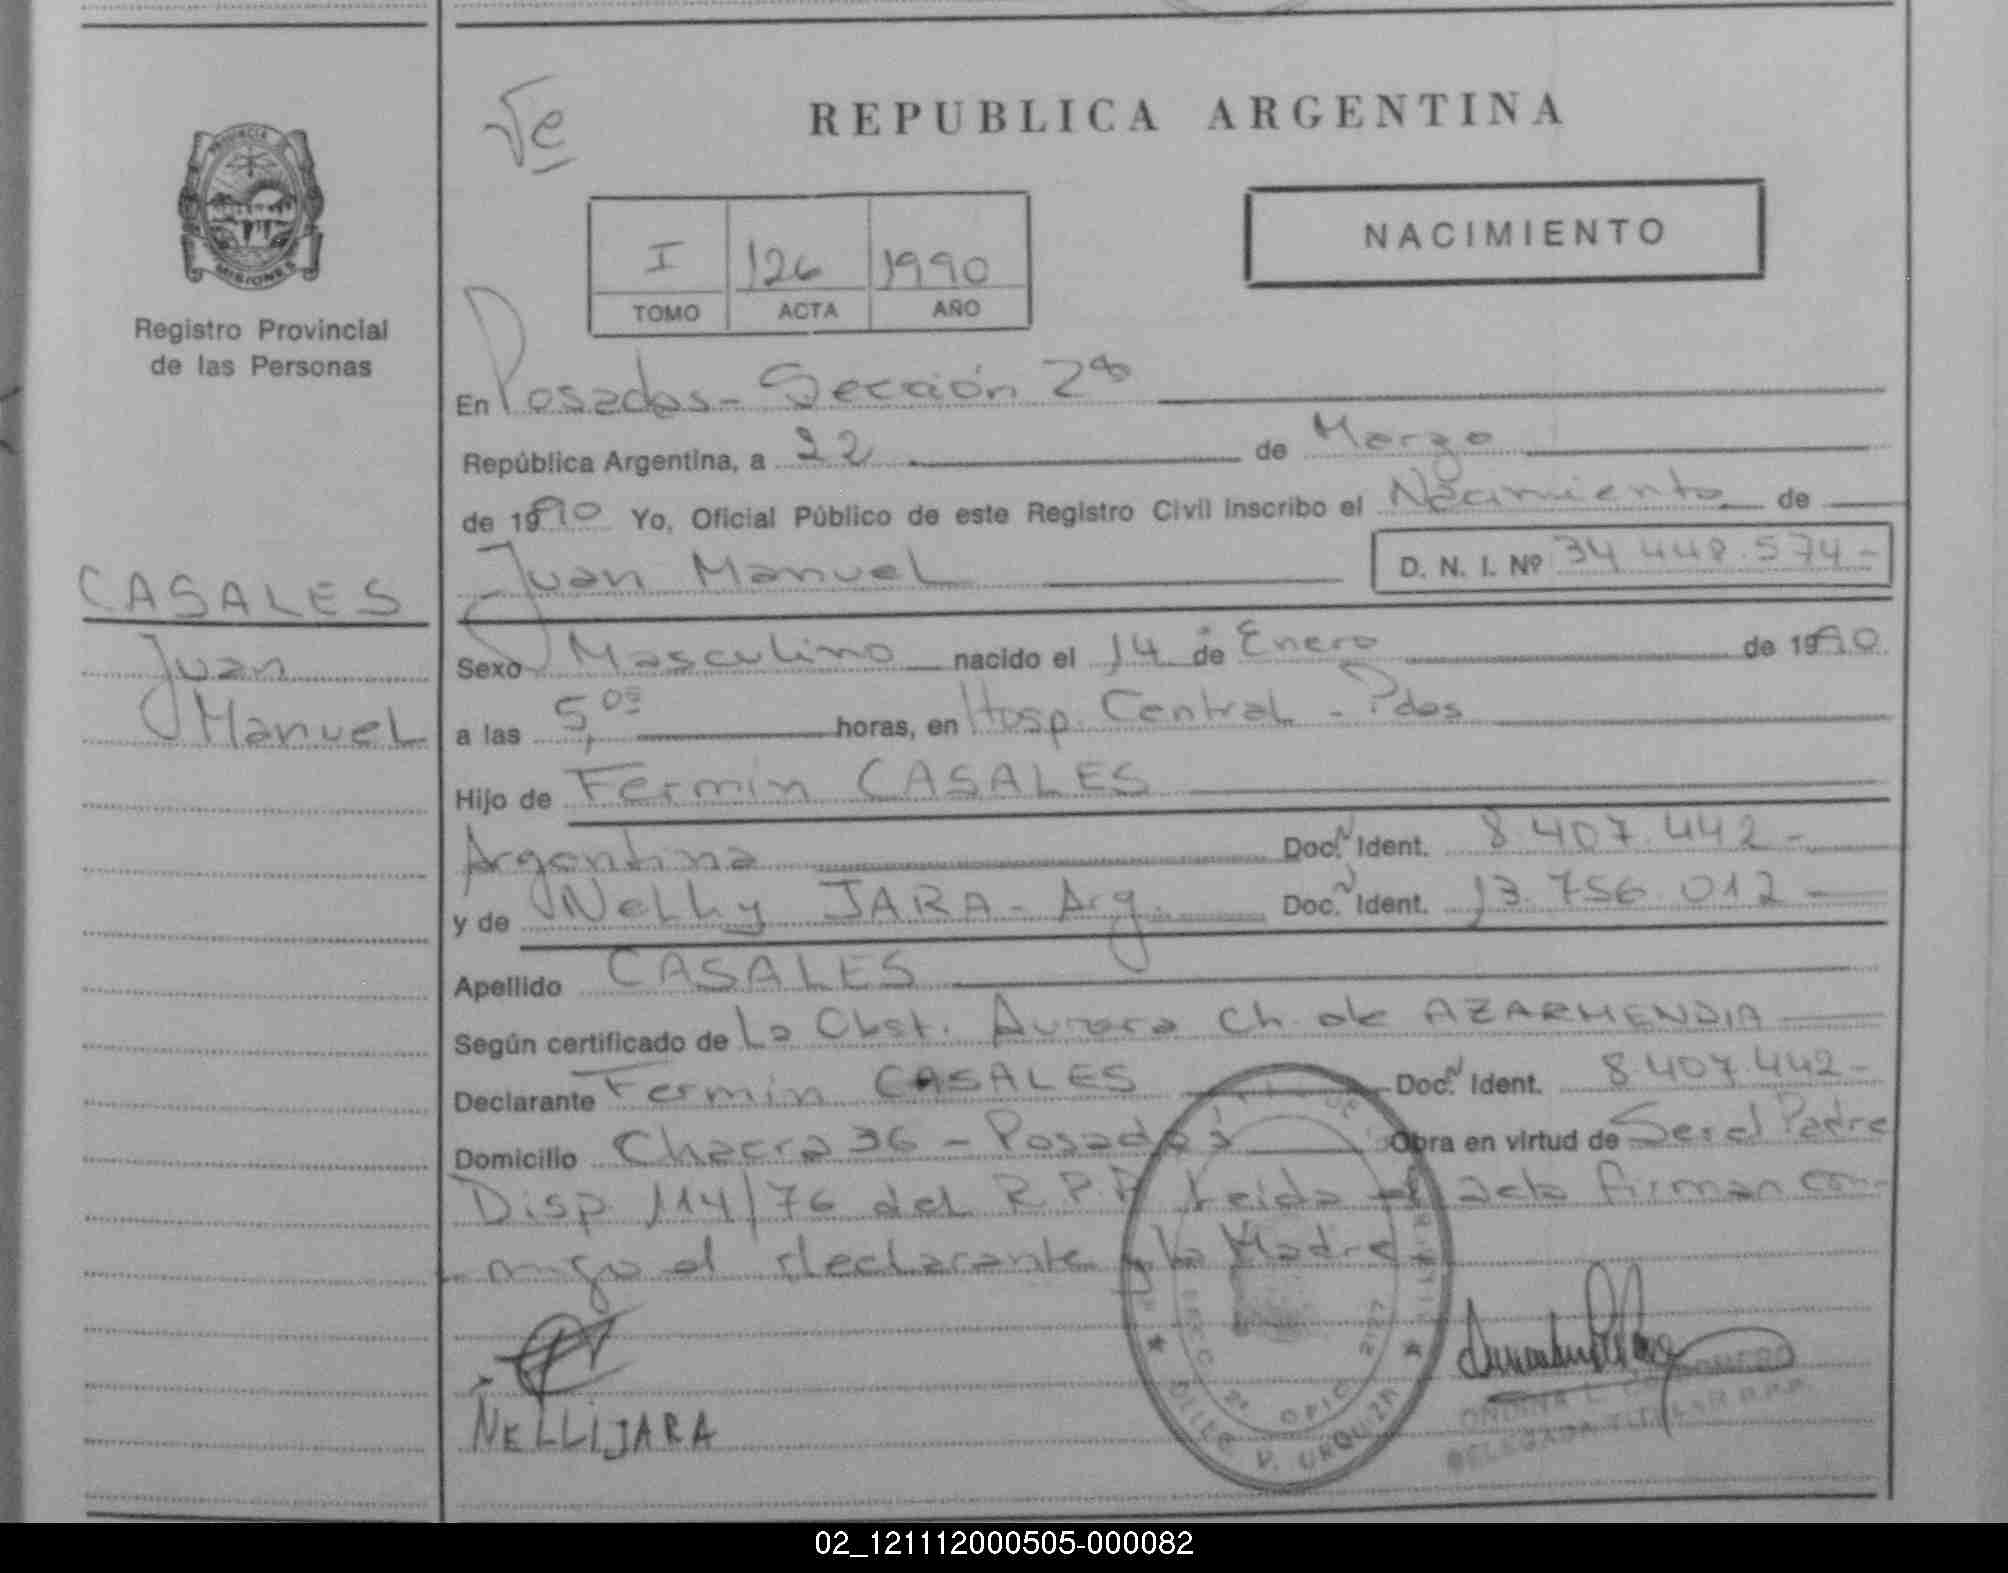 PROVINCIA
MISIONES
Registro Provincial
de las Personas
CASALES
Juan
Manuel
REPUBLICA ARGENTINA
NACIMIENTO
I 126 1990
TOMO ACTA AÑO
En Posadas - Sección 2ª
República Argentina, a 22 de Marzo
de 1990 Yo, Oficial Público de este Registro Civil inscribo el Nacimiento de
Juan Manuel D. N. I. Nº 34.448.574-
Sexo Masculino nacido el 14 de Enero de 1990.
a las 5,05 horas, en Hosp. Central - Pdas
Hijo de Fermin CASALES
Argentina Doc. Ident. 8.407.442-
y de Nelly JARA - Arg. Doc. Ident. 13.756.012-
Apellido CASALES
Según certificado de La Obst. Aurora Ch. de AZARMENDIA
Declarante Fermin CASALES Doc. Ident. 8.407.442-
Domicilio Chacra 36 - Posadas Obra en virtud de Ser el Padre
Disp. 114/76 del R.P.P. Leida el acta firman con-
migo el declarante y la Madre
NELLIJARA
SECC 2ª OFIC 2127
DELEG V. URQUIZA
ONDINA L. ROMERO
DELEGADA TITULAR R.P.P.
02_121112000505-000082